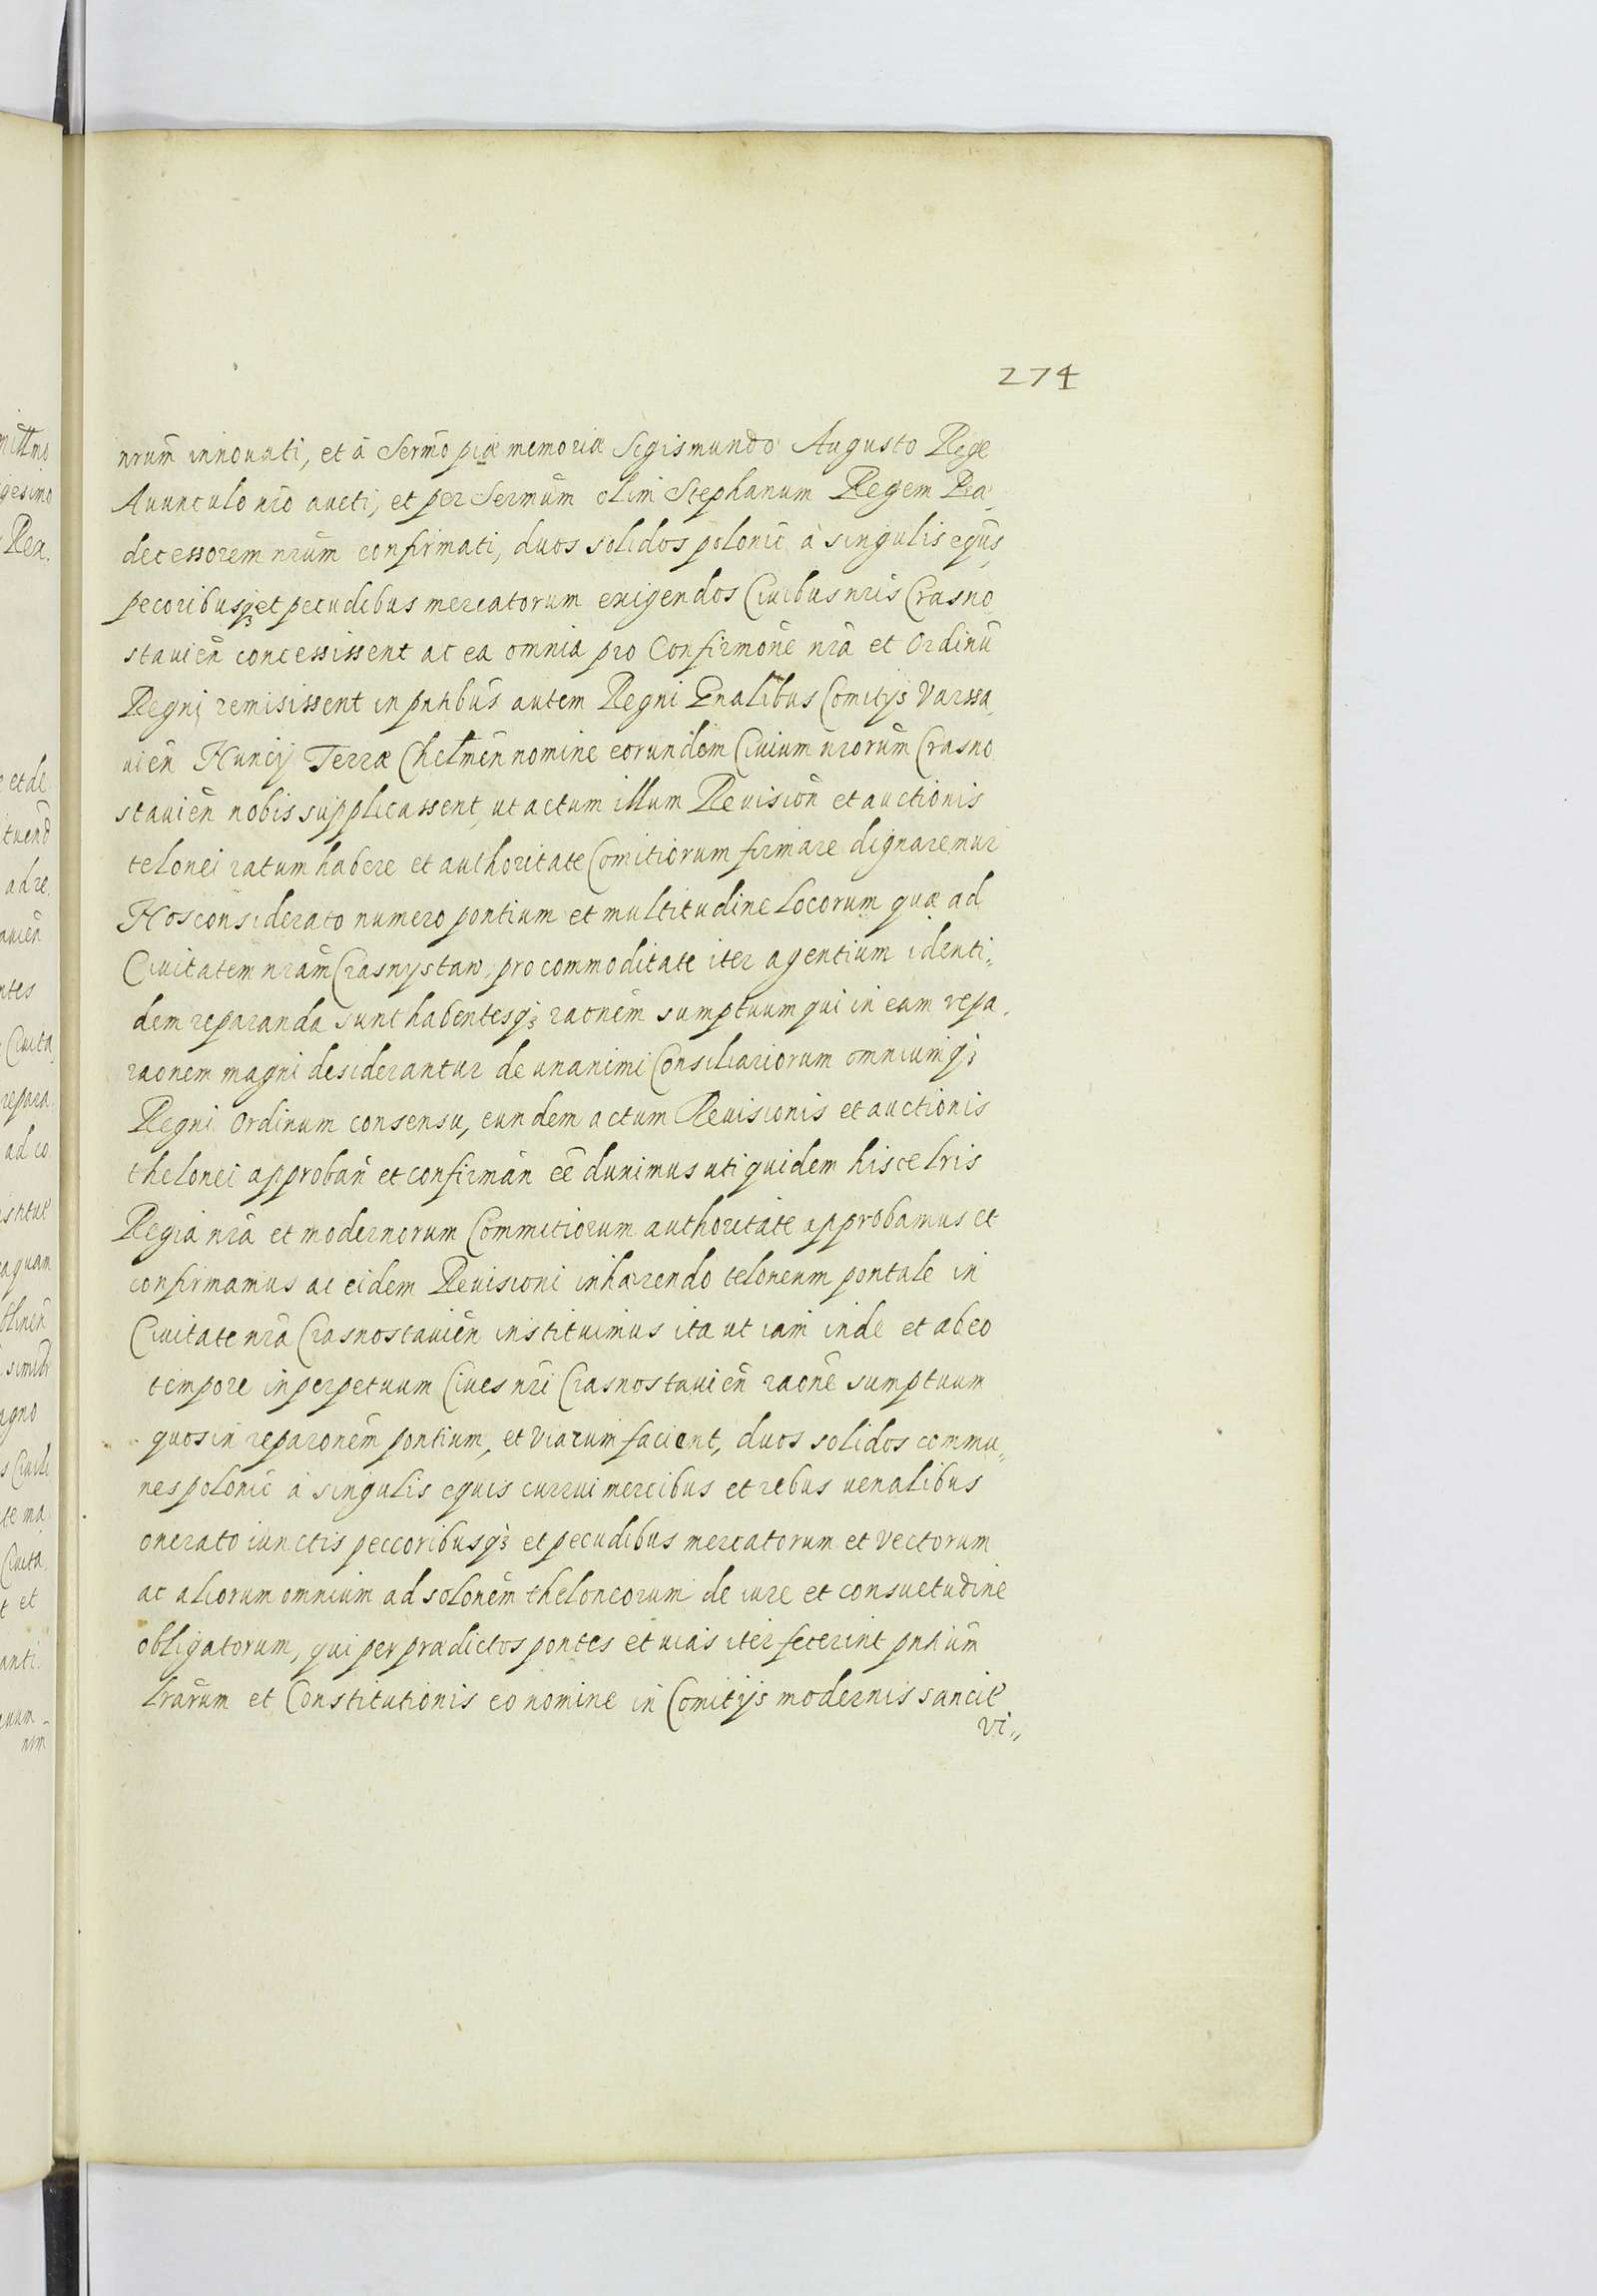 274
nrum̄ innovati, et à Sermō piæ memoriæ Sigismundo Augusto Rege
Avunculo nrō aucti, et per Sermūm olim Stephanum Regem Præ
decessorem nrūm confirmati, duos solidos polonic̄ à singulis equis,
pecoribusq3 et pecudibus mercatorum exigendos Civibus nrīs Crasno
stavien̄ concessissent ac ea omnia pro Confirmōne nrā et Ordinū
Regni remisissent in pn̄tibus autem Regni Gn̄alibus Comitijs Varssa,
vien̄ Nuncij Terræ Chelmen̄ nomine eorundem Civium nrorum̄ Crasno
stavien̄ nobis supplicassent, ut actum illum Revision̄ et auctionis
telonei ratum habere et authoritate Comitiorum firmare dignaremur
Nos considerato numero pontium et multitudine locorum quæ ad
Civitatem nrām Crasnystaw, pro commoditate iter agentium identi„
dem reparanda sunt habentesq3 raonem̄ sumptuum qui in eam repa,
raonem magni desiderantur de unanimi Consiliariorum omniumq3
Regni Ordinum consensu, eundem actum Revisionis et auctionis
thelonei approban̄ et confirman̄ eē duximus uti quidem hisce lrīs
Regia nrā et modernorum Commitiorum authoritate approbamus et
confirmamus ac eidem Revisioni inhærendo teloneum pontale in
Civitate nrā Crasnostavien̄ instituimus ita ut iam inde et ab eo
tempore in perpetuum Cives nrī Crasnostavien̄ raonē sumptuum
quos in reparonem̄ pontium, et viarum facient, duos solidos commu„
nes polonic̄ à singulis equis currui mercibus et rebus venalibus
onerato iunctis peccoribusq3 et pecudibus mercatorum et vectorum
ac aliorum omnium ad solonem̄ theloneorum de iure et consuetudine
obligatorum, qui per prædictos pontes et vias iter fecerint pn̄tium
lrarum̄ et Constitutionis eo nomine in Comitijs modernis sancitæ
vi„